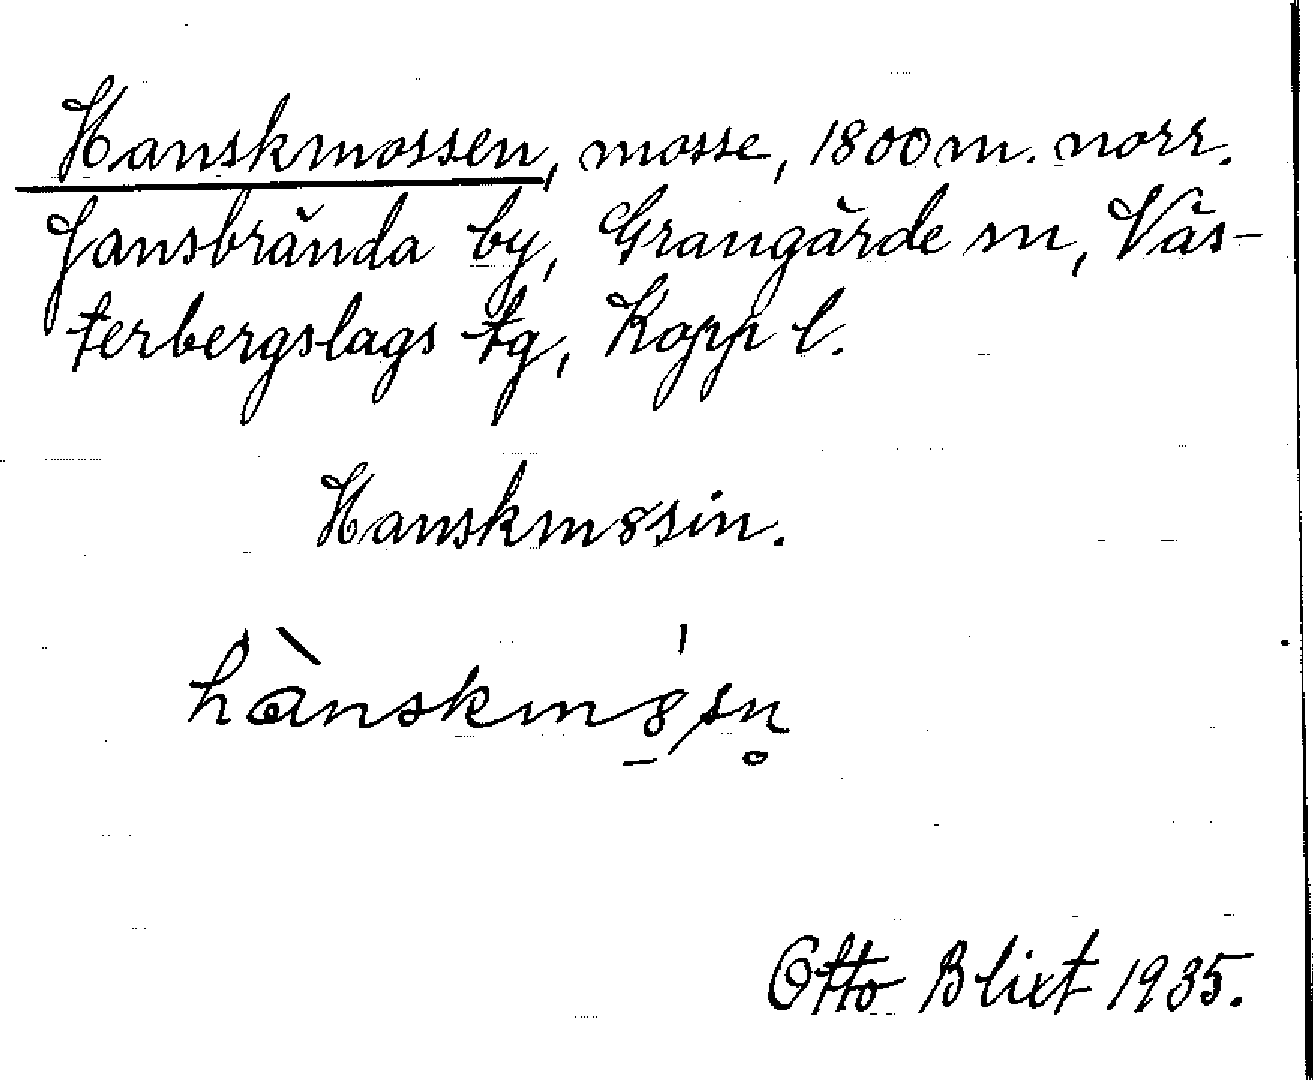 Hanskmossen, mosse, 1800 m. norr.
Jansbrända by, Grangärde sn, Väs-
terbergslags tg, Kopp l.
Hanskm8sin.
hànskm8̠sn̥
Otto Blixt 1935.